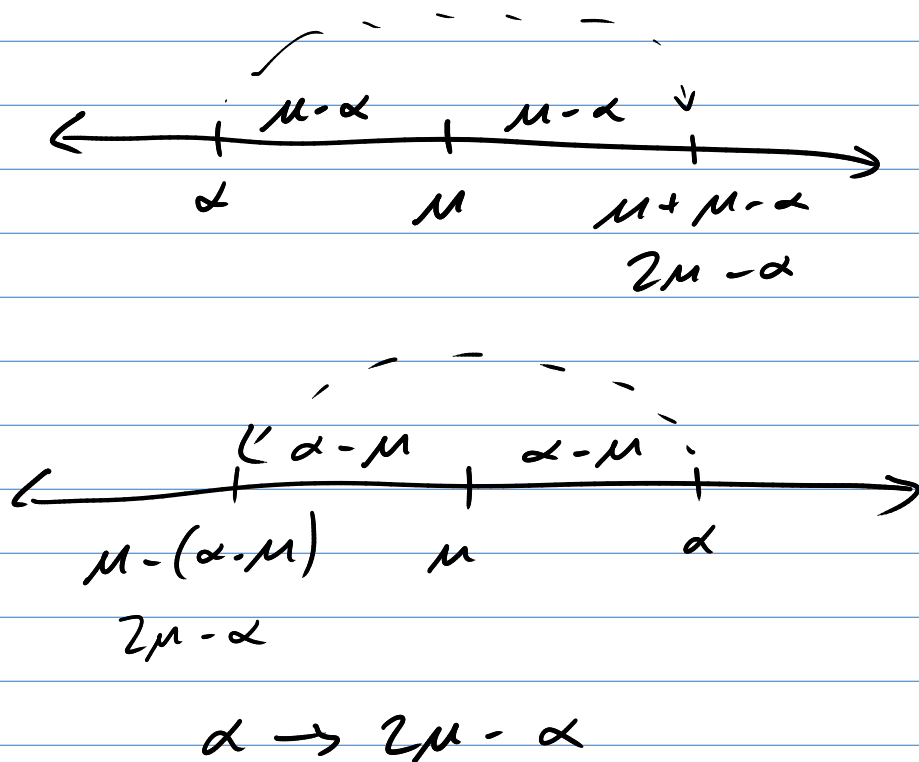 μ-α μ-α
α μ μ+μ-α
2μ-α
α-μ α-μ
μ-(α-μ) μ α
2μ-α
α → 2μ-α